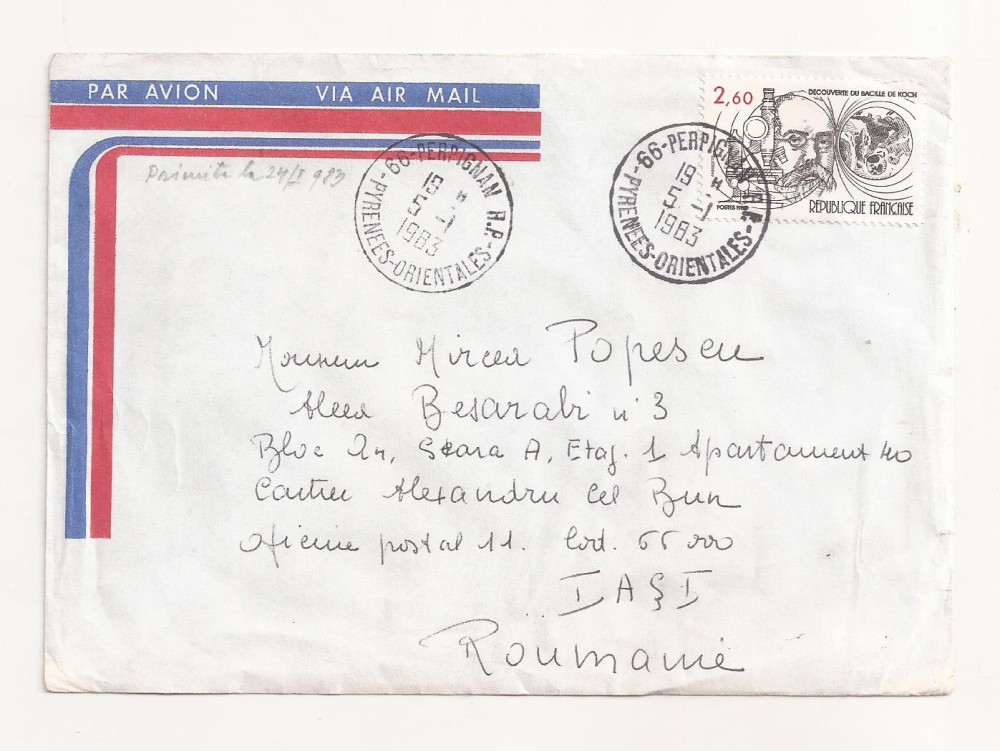 PAR AVION VIA AIR MAIL
2,60 DECOUVERTE DU BACILLE DE KOCH
POSTES 1982 REPUBLIQUE FRANÇAISE
66-PERPIGNAN R.P.-
19 H
5-1
1983
-PYRENEES-ORIENTALES-
66-PERPIGNAN R.P.
19 H
5-1
1983
-PYRENEES-ORIENTALES-
Primita la 24/I 983
Monsieur Mircea Popescu
Aleea Basarabi n° 3
Bloc Scara A, Etaj. 1 Apartament 40
Cartier Alexandru cel Bun
Oficiue postal 11. Cod. 66000
IAŞI
Roumanie